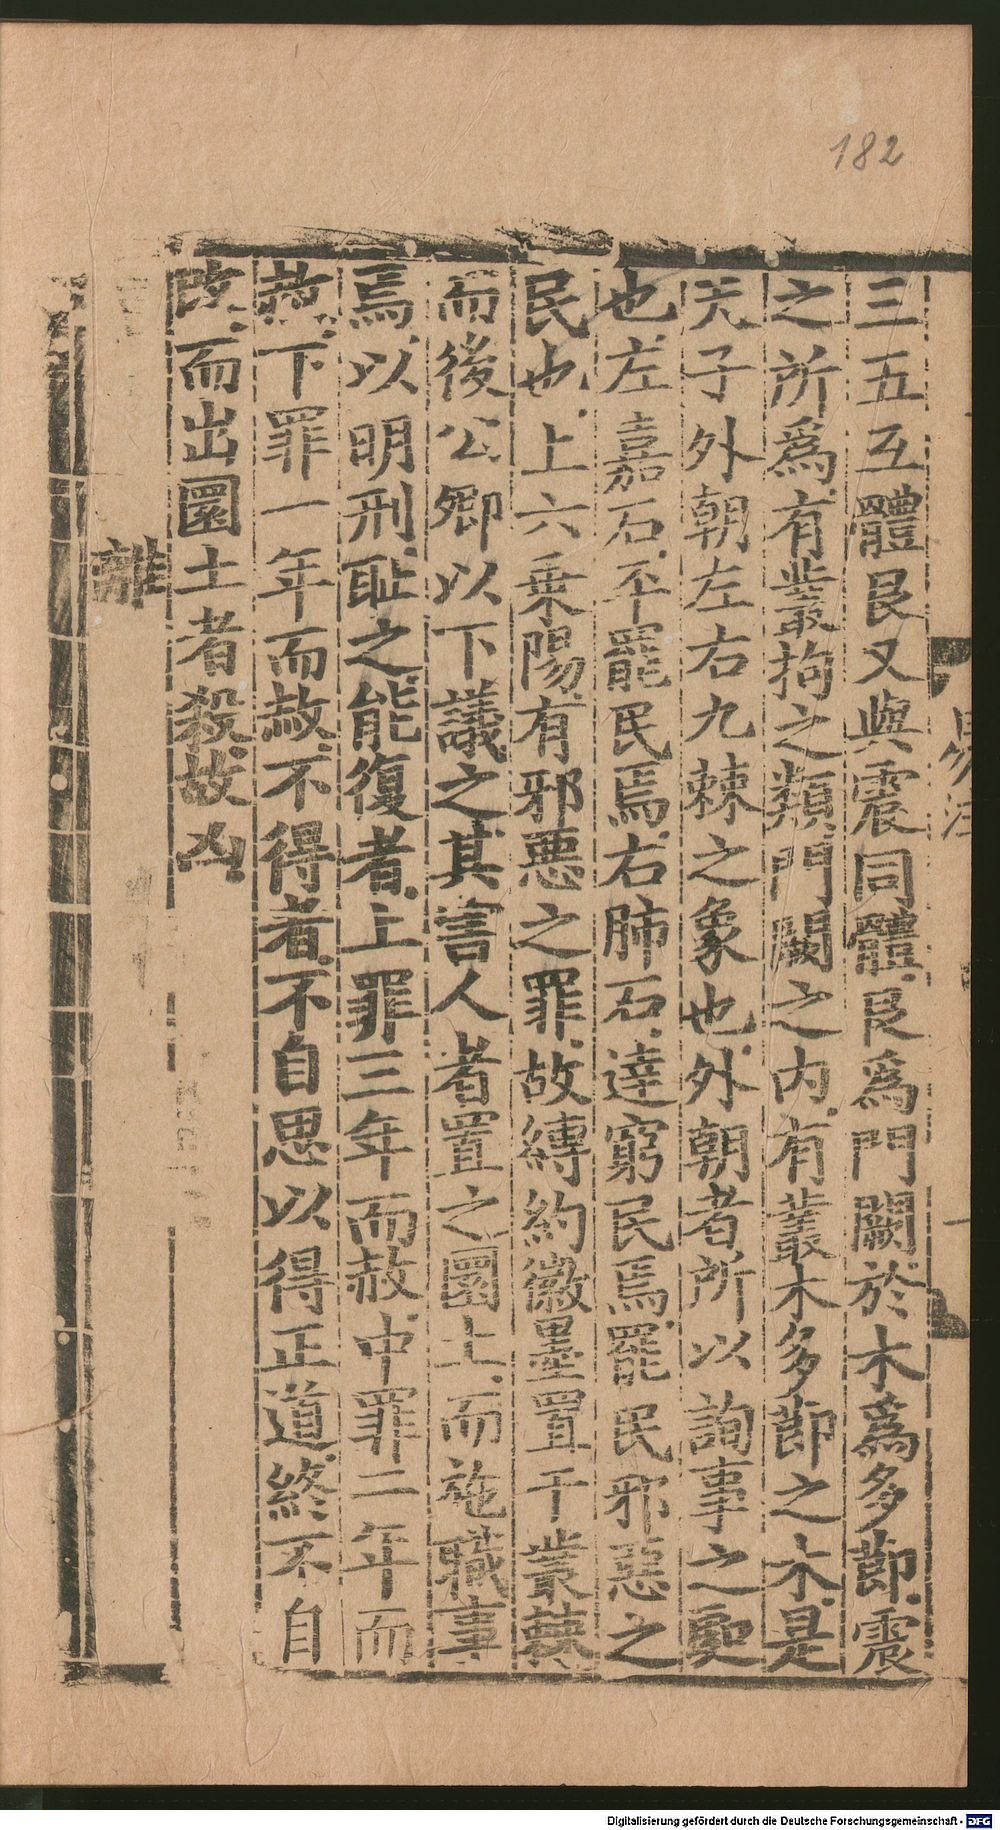 182
三五互體艮又與震同體艮爲門闕於木爲多節震
之所爲有叢拘之類門闕之內有叢木多節之木是
天子外朝左右九棘之象也外朝者所以詢事之處
也左嘉石平罷民焉右肺石達窮民焉罷民邪惡之
民也上六乘陽有邪惡之罪故縛約徽墨置于叢棘
而後公卿以下議之其害人者置之圜土而施職事
焉以明刑恥之能復者上罪三年而赦中罪二年而
赦下罪一年而赦不得者不自思以得正道終不自
改而出圜土者殺故凶
離
易注
Digitalisierung gefördert durch die Deutsche Forschungsgemeinschaft - DFG